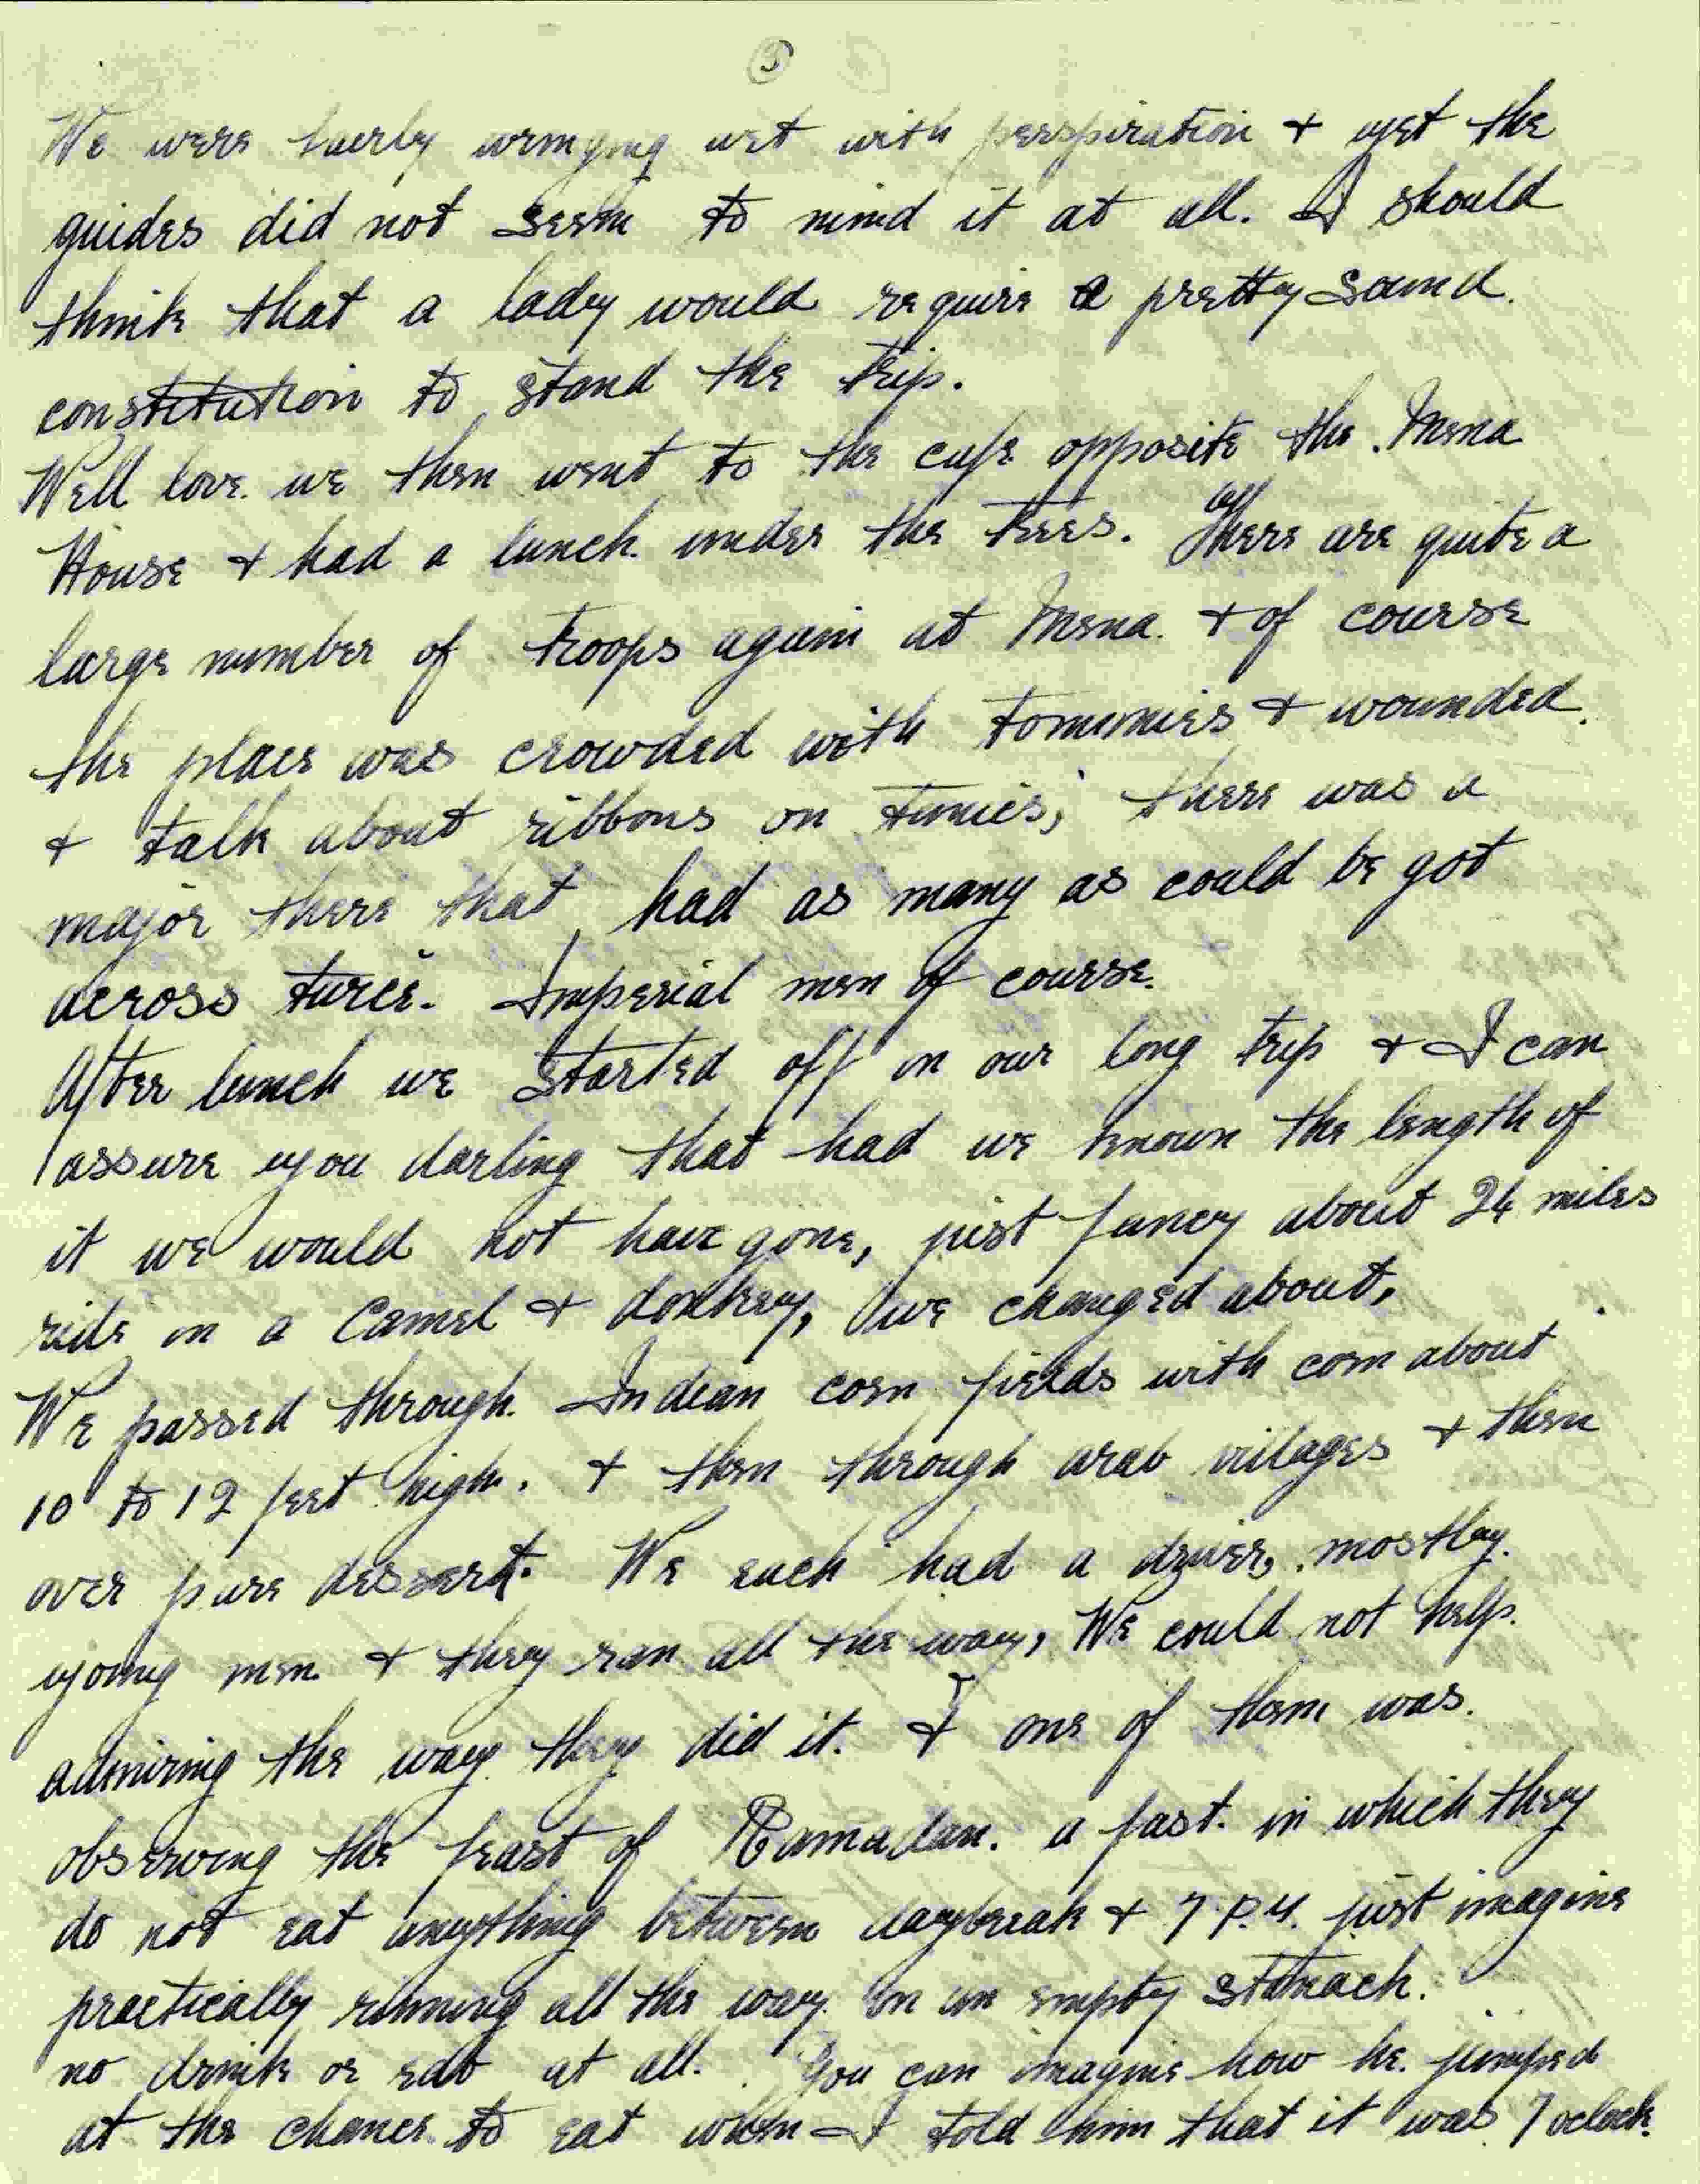 3
We were fairly wringing wet with perspiration & yet the
guides did not seem to mind it at all. I should
think that a lady would require a pretty sound.
constitution to stand the trip.
Well love. we then went to the cafe opposite the Mena
House & had a lunch under the trees. There are quite a
large number of troops again at Mena. & of course
the place was crowded with tommies & wounded.
& talk about ribbons on tunics; there was a
major there that had as many as could be got
across twice. Imperial men of course.
After lunch we started off on our long trip & I can
assure you darling that had we known the length of
it we would not have gone, just fancy about 24 miles
ride on a camel & donkey, we changed about,
We passed through Indian corn fields with corn about
10 to 12 feet high. & then through arab villages & then
over pure dessert. We each had a driver, mostley.
young men & they ran all the way, We could not help.
admiring the way they did it. & one of them was.
observing the feast of Ramadan. a fast. in which they
do not eat anything between daybreak & 7.P.M. just imagine
practically running all the way on an empty stomach.
no drink or eat at all. You can imagine how he jumped
at the chance to eat when I told him that it was 7 oclock.